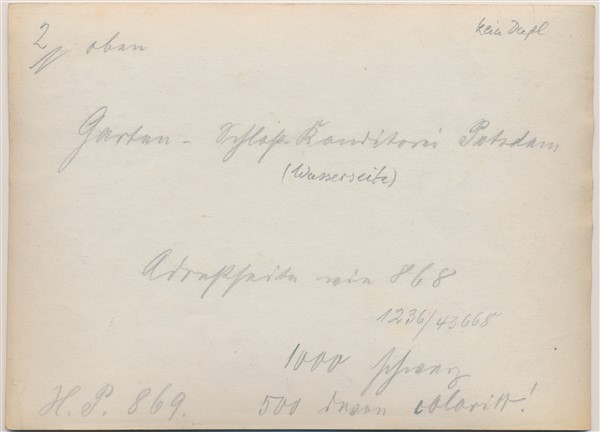 2 oben
kein Dupl
Garten - Schloß-Konditorei Potsdam
(Wasserseite)
Adreßseite wie 868
1236/43668
1000 schwarz
H. P. 869. 500 davon colorirt!